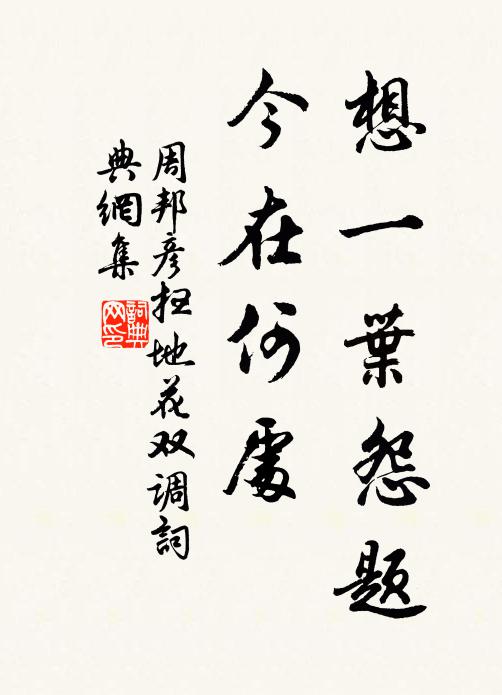 想一葉怨题
今在何處
周邦彦扫地花双调詞
典網集
詞典网印